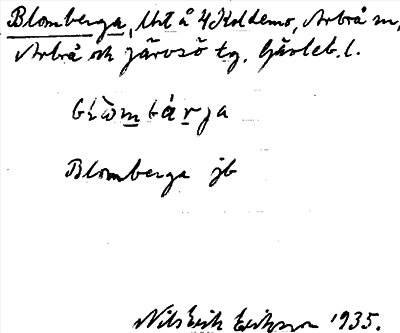 Blomberga, Ut å 4 Koldemo, Arbrå sn,
Arbrå och Järvsö tg. Gävleb. l.
Blomberga jb
Nils Erik Eriksson 1935.